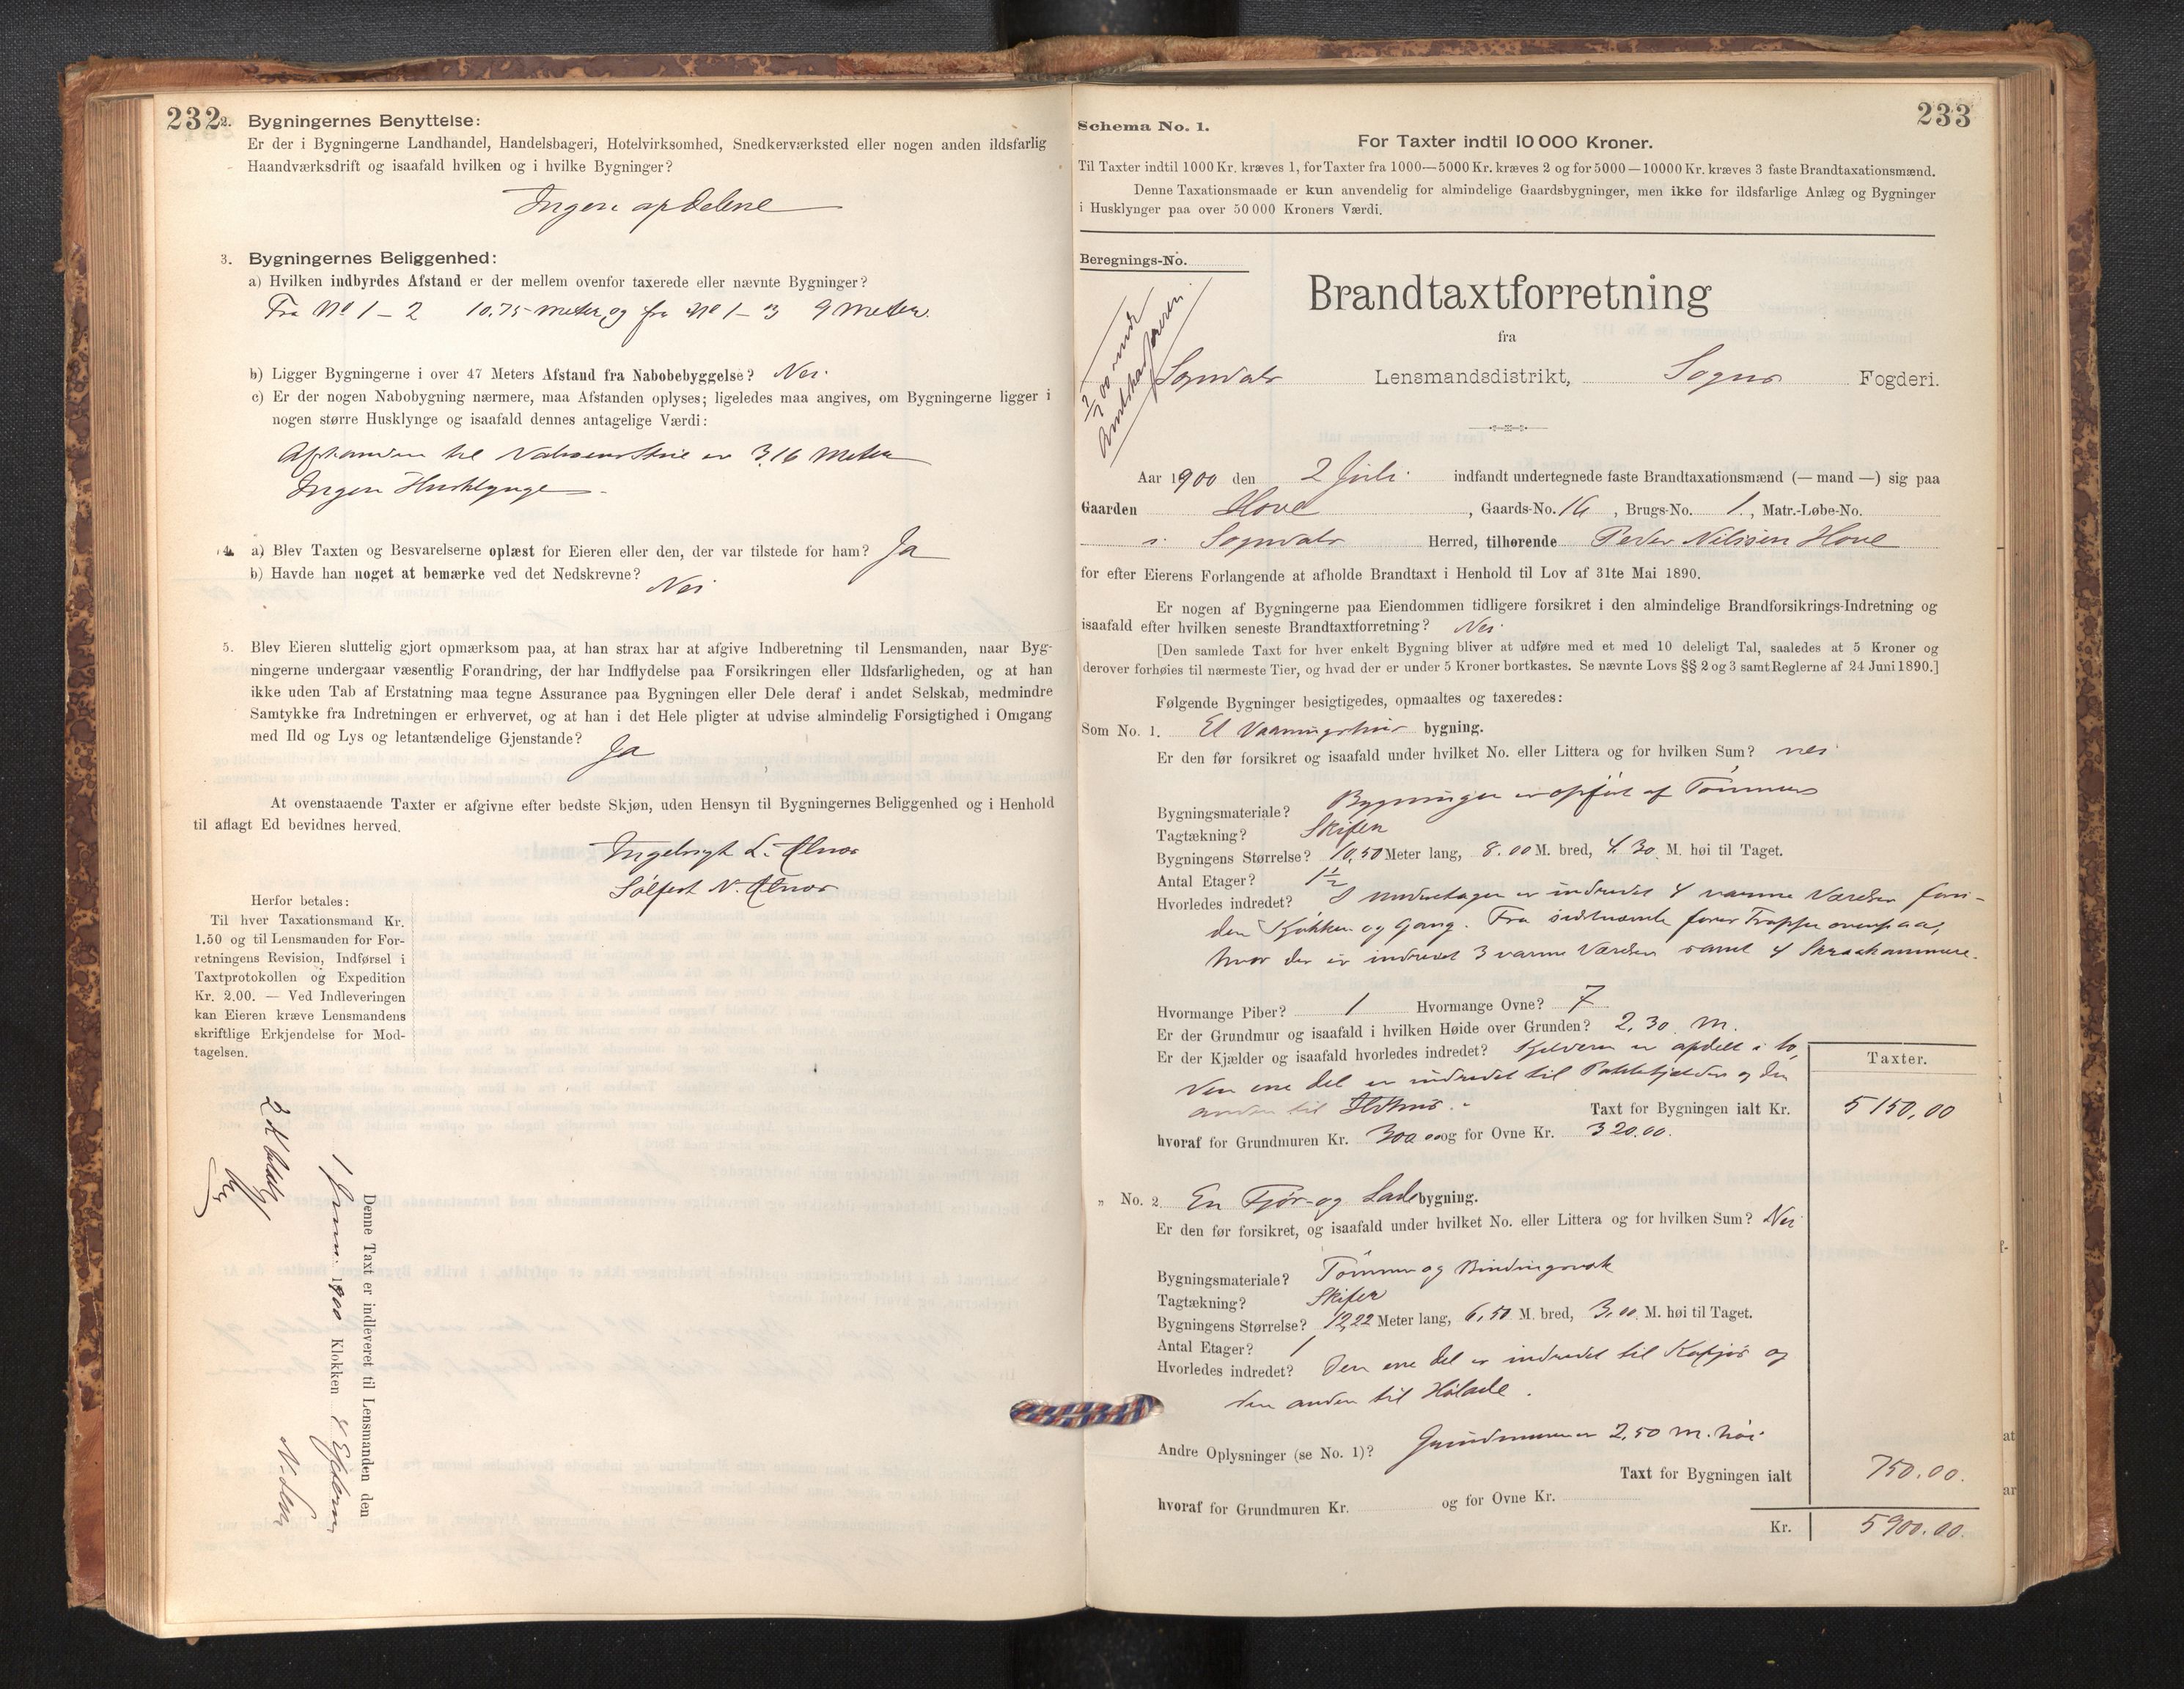 232
2. Bygningernes Benyttelse:
Er der i Bygningerne Landhandel, Handelsbageri, Hotelvirksomhed, Snedkerværksted eller nogen anden ildsfarlig
Haandværksdrift og isaafald hvilken og i hvilke Bygninger?
Ingen af Delene
3. Bygningernes Beliggenhed:
a) Hvilken indbyrdes Afstand er der mellem ovenfor taxerede eller nævnte Bygninger?
Fra No 1 - 2 10.75 meter og fra No 1 - 3 9 Meter.
b) Ligger Bygningerne i over 47 Meters Afstand fra Nabobebyggelse? Nei.
c) Er der nogen Nabobygning nærmere, maa Afstanden oplyses; ligeledes maa angives, om Bygningerne ligger i
nogen større Husklynge og isaafald dennes antagelige Værdi:
Afstanden til er 3.16 Meter
Ingen Husklynge
4. a) Blev Taxten og Besvarelserne oplæst for Eieren eller den, der var tilstede for ham? Ja
b) Havde han noget at bemærke ved det Nedskrevne?
Nei
5. Blev Eieren sluttelig gjort opmærksom paa, at han strax har at afgive Indberetning til Lensmanden, naar Byg-
ningerne undergaar væsentlig Forandring, der har Indflydelse paa Forsikringen eller Ildsfarligheden, og at han
ikke uden Tab af Erstatning maa tegne Assurance paa Bygningen eller Dele deraf i andet Selskab, medmindre
Samtykke fra Indretningen er erhvervet, og at han i det Hele pligter at udvise almindelig Forsigtighed i Omgang
med Ild og Lys og letantændelige Gjenstande?
Ja
At ovenstaaende Taxter er afgivne efter bedste Skjøn, uden Hensyn til Bygningernes Beliggenhed og i Henhold
til aflagt Ed bevidnes herved.
Ingebrigt L.
N.
Herfor betales:
Til hver Taxationsmand Kr.
1.50 og til Lensmanden for For-
retningens Revision, Indførsel i
Taxtprotokollen og Expedition
Kr. 2.00. — Ved Indleveringen
kan Eieren kræve Lensmandens
skriftlige Erkjendelse for Mod-
tagelsen.
Denne Taxt er indleveret til Lensmanden den
1 1900 Klokken
2 Kr betalt
233
Schema No. 1.
For Taxter indtil 10 000 Kroner.
Til Taxter indtil 1000 Kr. kræves 1, for Taxter fra 1000—5000 Kr. kræves 2 og for 5000—10000 Kr. kræves 3 faste Brandtaxationsmænd.
Denne Taxationsmaade er kun anvendelig for almindelige Gaardsbygninger, men ikke for ildsfarlige Anlæg og Bygninger
i Husklynger paa over 50 000 Kroners Værdi.
Beregnings-No.
Brandtaxtforretning
fra
Sogndals Lensmandsdistrikt, Sogns Fogderi.
Aar 1900 den 2 Juli indfandt undertegnede faste Brandtaxationsmænd (— mand —) sig paa
Gaarden Hove, Gaards-No. 16, Brugs-No. 1, Matr.-Løbe-No.
i Sogndals Herred, tilhørende Peder Nilssen Hove
for efter Eierens Forlangende at afholde Brandtaxt i Henhold til Lov af 31te Mai 1890.
Er nogen af Bygningerne paa Eiendommen tidligere forsikret i den almindelige Brandforsikrings-Indretning og
isaafald efter hvilken seneste Brandtaxtforretning? Nei
[Den samlede Taxt for hver enkelt Bygning bliver at udføre med et med 10 deleligt Tal, saaledes at 5 Kroner og
derover forhøies til nærmeste Tier, og hvad der er under 5 Kroner bortkastes. Se nævnte Lovs §§ 2 og 3 samt Reglerne af 24 Juni 1890.]
Følgende Bygninger besigtigedes, opmaaltes og taxeredes:
Som No. 1. Et Vaaningshus bygning.
Er den før forsikret og isaafald under hvilket No. eller Littera og for hvilken Sum? nei
Bygningsmateriale? Bygningen er opført af Tømmer
Tagtækning? Skifer
Bygningens Størrelse? 10,50 Meter lang, 8.00 M. bred, 4.30 M. høi til Taget.
Antal Etager? 1½
Hvorledes indredet? I Underetagen er indredet 4 varme Værelser foru-
den Kjøkken og Gang. Fra sidstnævnte fører Trappe ovenpaa,
hvor der er indredet 3 varme Værelser samt 4 Skraakammere.
Hvormange Piber? 1 Hvormange Ovne? 7
Er der Grundmur og isaafald i hvilken Høide over Grunden? 2.30 m.
Er der Kjælder og isaafald hvorledes indredet? Kjelderen er afdelt i to,
Den ene Del er indredet til og den
anden til Ildhus.
Taxter.
Taxt for Bygningen ialt Kr. 5150,00
hvoraf for Grundmuren Kr. 300.00 og for Ovne Kr. 320.00.
„ No. 2. En Fjøs- og Lade bygning.
Er den før forsikret, og isaafald under hvilket No. eller Littera og for hvilken Sum? Nei
Bygningsmateriale? Tømmer og Bindingsværk
Tagtækning? Skifer
Bygningens Størrelse? 12,22 Meter lang, 6,50 M. bred, 3,00 M. høi til Taget.
Antal Etager? 1
Hvorledes indredet? Den ene Del er indredet til Kofjøs og
den anden til Hølade.
Andre Oplysninger (se No. 1)? Grundmuren er 2,50 m. høi
Taxt for Bygningen ialt 750.00.
hvoraf for Grundmuren Kr. og for Ovne Kr.
Kr. 5900.00.